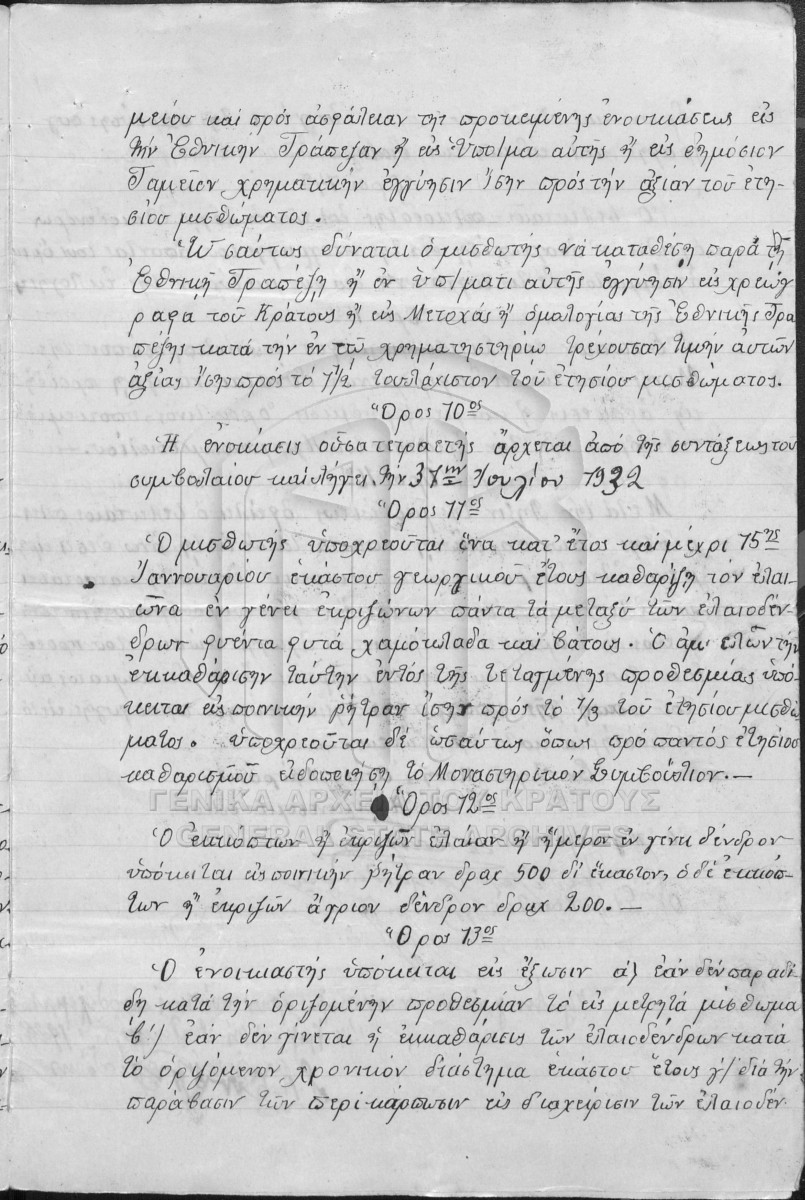 μείου καὶ πρὸς ἀσφάλειαν τῆς προκειμένης ἐνοικιάσεως εἰς
τὴν Ἐθνικὴν Τράπεζαν ἢ εἰς Ὑπο/μα αὐτῆς ἢ εἰς δημόσιον
Ταμεῖον χρηματικὴν ἐγγύησιν ἴσην πρὸς τὴν ἀξίαν τοῦ ἐτη-
σίου μισθώματος.
Ὡσαύτως δύναται ὁ μισθωτὴς νὰ καταθέσῃ παρὰ τῇ
Ἐθνικῇ Τραπέζῃ ἢ ἐν ὑπ/ματι αὐτῆς ἐγγύησιν εἰς χρεώγ
ραφα τοῦ Κράτους ἢ εἰς Μετοχὰς ἢ ὁμολογίας τῆς Ἐθνικῆς Τρα
πέζης κατὰ τὴν ἐν τῷ χρηματηστηρίῳ τρέχουσαν τιμὴν αὐτῶν
ἀξίας ἴσης πρὸς τὸ 1/2 τοὐλάχιστον τοῦ ἐτησίου μισθώματος.
Ὅρος 10ος
Ἡ ἐνοικίασις οὖσα τετραετὴς ἄρχεται ἀπὸ τῆς συντάξεως του
συμβολαίου καὶ λήγει τὴν 31ην Ἰουλίου 1932
Ὅρος 11ος
Ὁ μισθωτὴς ὑποχρεοῦται ἵνα κατ' ἔτος καὶ μέχρι 15ης
Ἰαννουαρίου ἑκάστου γεωργικοῦ ἔτους καθαρίζῃ τὸν ἐλαι-
ῶνα ἐν γένει ἐκριζώνων πάντα τὰ μεταξὺ τῶν ἐλαιοδέν-
δρων φυέντα φυτὰ χαμόκλαδα καὶ βάτους. Ὁ ἀμελῶν τὴν
ἐκκαθάρισιν ταύτην ἐντὸς τῆς τεταγμένης προθεσμίας ὑπό-
κειται εἰς ποινικὴν ρήτραν ἴσην πρὸς τὸ 1/3 τοῦ ἐτησίου μισθώ
ματος. ὑποχρεοῦται δὲ ὡσαύτως ὅπως πρὸ παντὸς ἐτησίου
καθαρισμοῦ εἰδοποιήσῃ τὸ Μοναστηριακὸν Συμβούλιον.—
Ὅρος 12ος
Ὁ ἐκκόπτων ἢ ἐκριζῶν ἐλαίαν ἢ ἥμερον ἐν γένει δένδρον
ὑπόκειται εἰς ποινικὴν ρήτραν δραχ 500 δι' ἕκαστον, ὁ δὲ ἐκκόπ-
των ἢ ἐκριζῶν ἄγριον δένδρον δραχ 200.—
Ὅρος 13ος
Ὁ ἐνοικιαστὴς ὑπόκειται εἰς ἔξωσιν α') ἐὰν δὲν παραδί
δῃ κατὰ τὴν ὁριζομένην προθεσμίαν τὸ εἰς μετρητὰ μίσθωμα
β') ἐὰν δὲν γίνεται ἡ ἐκκαθάρισις τῶν ἐλαιοδένδρων κατὰ
τὸ ὁριζόμενον χρονικὸν διάστημα ἑκάστου ἔτους γ') διὰ τὴν
παράβασιν τῶν περὶ κάρπωσιν εἰς διαχείρισιν τῶν ἐλαιοδέν-
ΓΕΝΙΚΑ ΑΡΧΕΙΑ ΤΟΥ ΚΡΑΤΟΥΣ
GENERAL STATE ARCHIVES